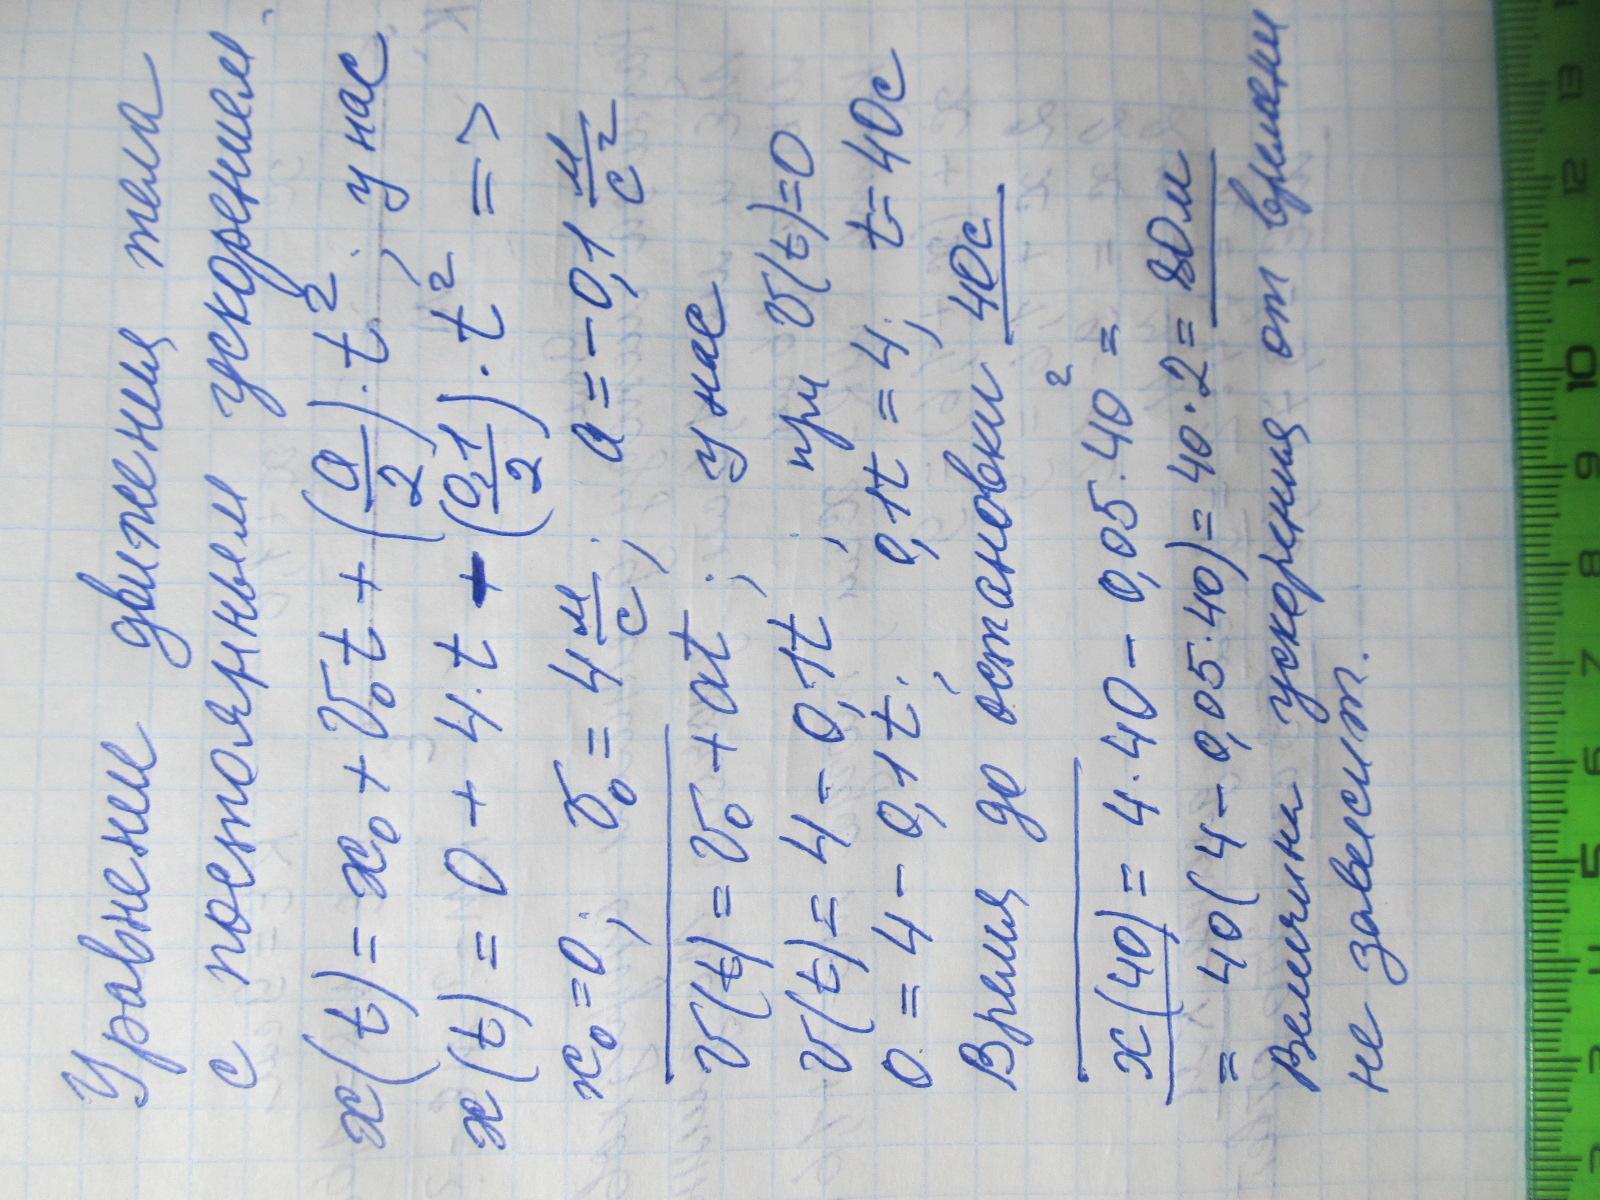 Уравнение движения тела
с постоянным ускорением
x(t) = x₀ + v₀t + (a/2)·t²; у нас
x(t) = 0 + 4·t - (0,1/2)·t² =>
x₀ = 0; v₀ = 4 м/с; a = -0,1 м/с²
v(t) = v₀ + at; у нас
v(t) = 4 - 0,1t; при v(t)=0
0 = 4 - 0,1t; 0,1t = 4; t = 40с
Время до остановки 40с
x(40) = 4·40 - 0,05·40² =
= 40(4 - 0,05·40) = 40·2 = 80м
Величина ускорения от времени
не зависит.
3 4 5 6 7 8 9 10 11 12 13